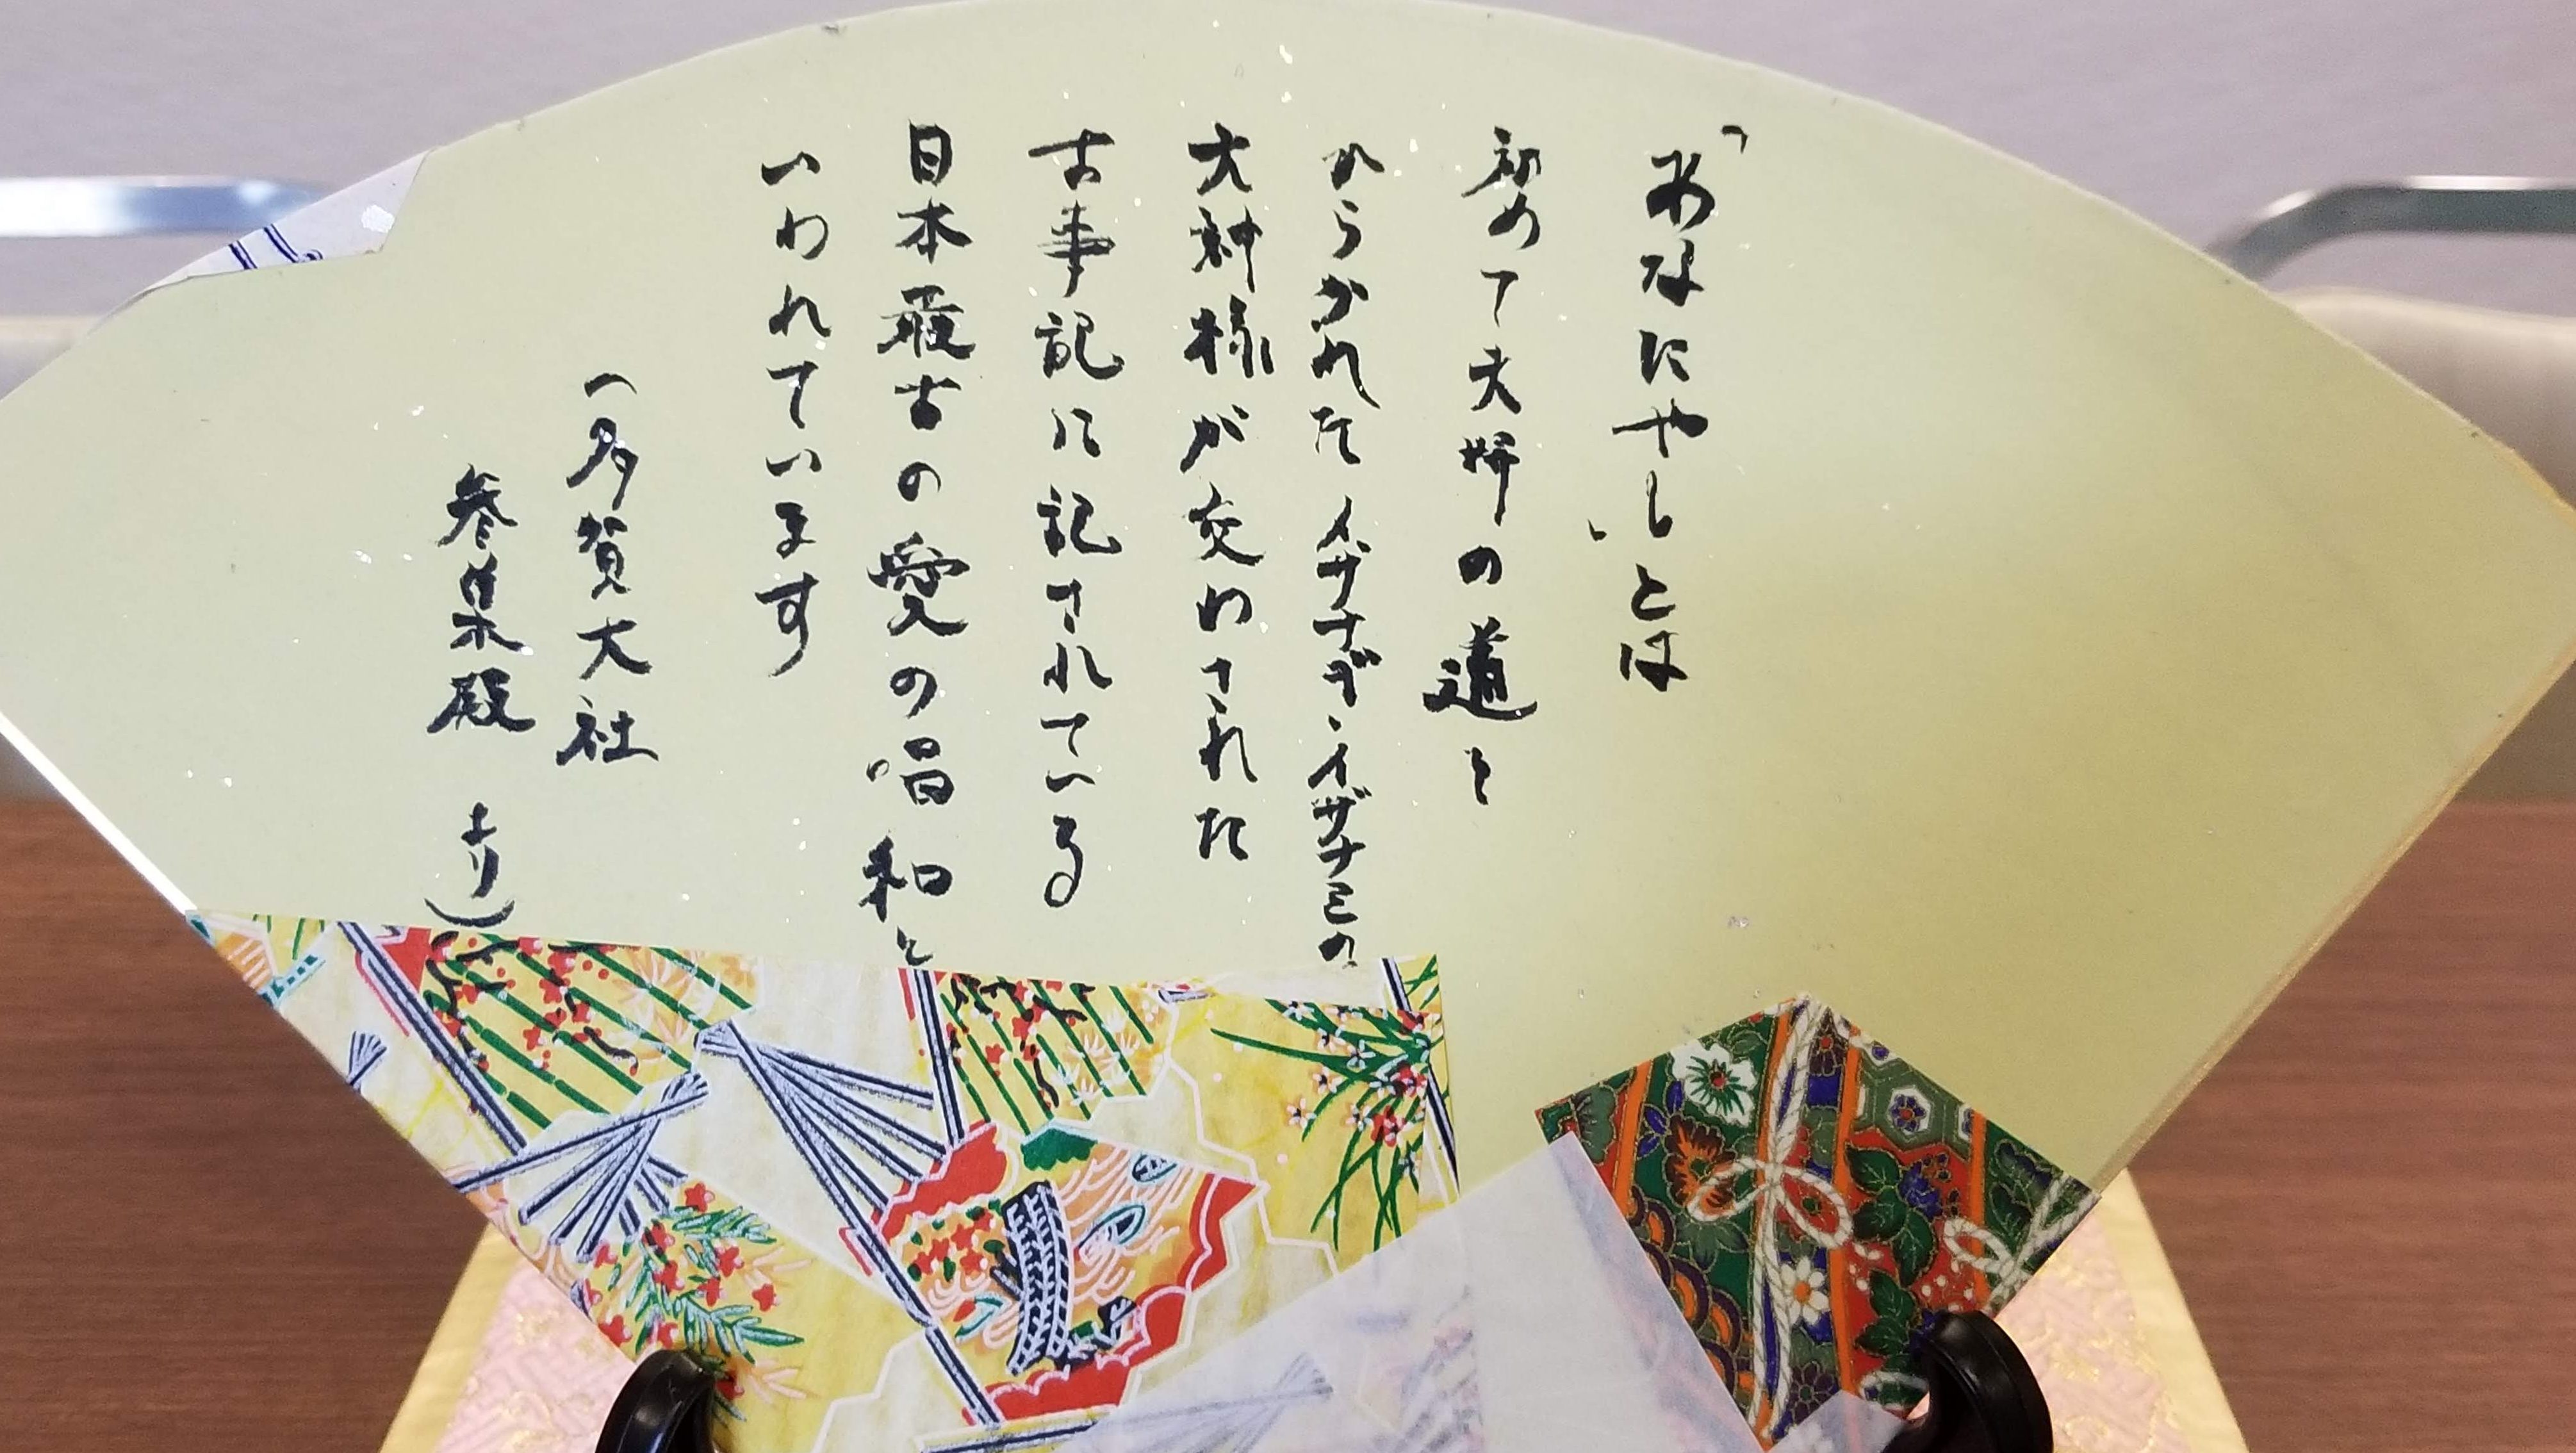 「あなにやし」とは
初めて夫婦の道を
ひらかれたイザナギ・イザナミの
大神様が交わされた
古事記に記されている
日本最古の愛の唱和と
いわれています
(多賀大社
参集殿 より)